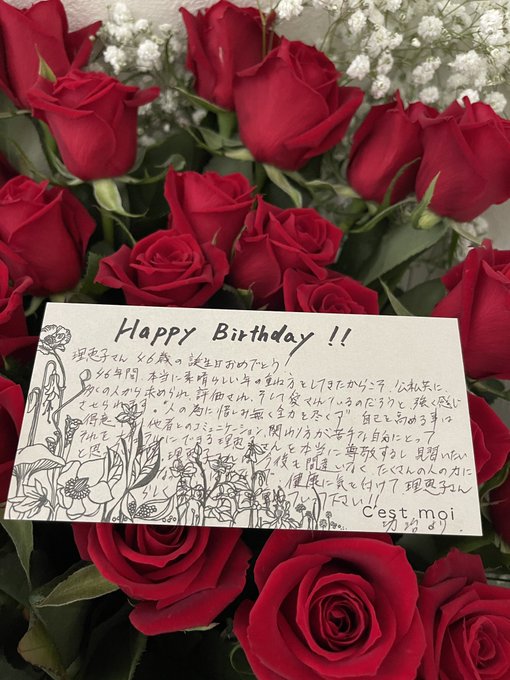 Happy Birthday !!
理恵子さん 46歳の誕生日おめでとう!
46年間、本当に素晴らしい年の重ね方をしてきたからこそ、公私共に
多くの人から求められ、評価され、そして愛されているのだろうと強く感じ
させられます。"人の為に惜しみ無く全力を尽くす" 自己を高める事は
得意 他者とのコミュニケーション、関わり方が苦手な自分にとって
それを にできる理恵子さんを本当に尊敬するし見習いたい
と思 理恵子さん 今後も間違いなく、たくさんの人の力に
健康に気を付けて、理恵子さん
らし 下さい!!
C'est moi
より